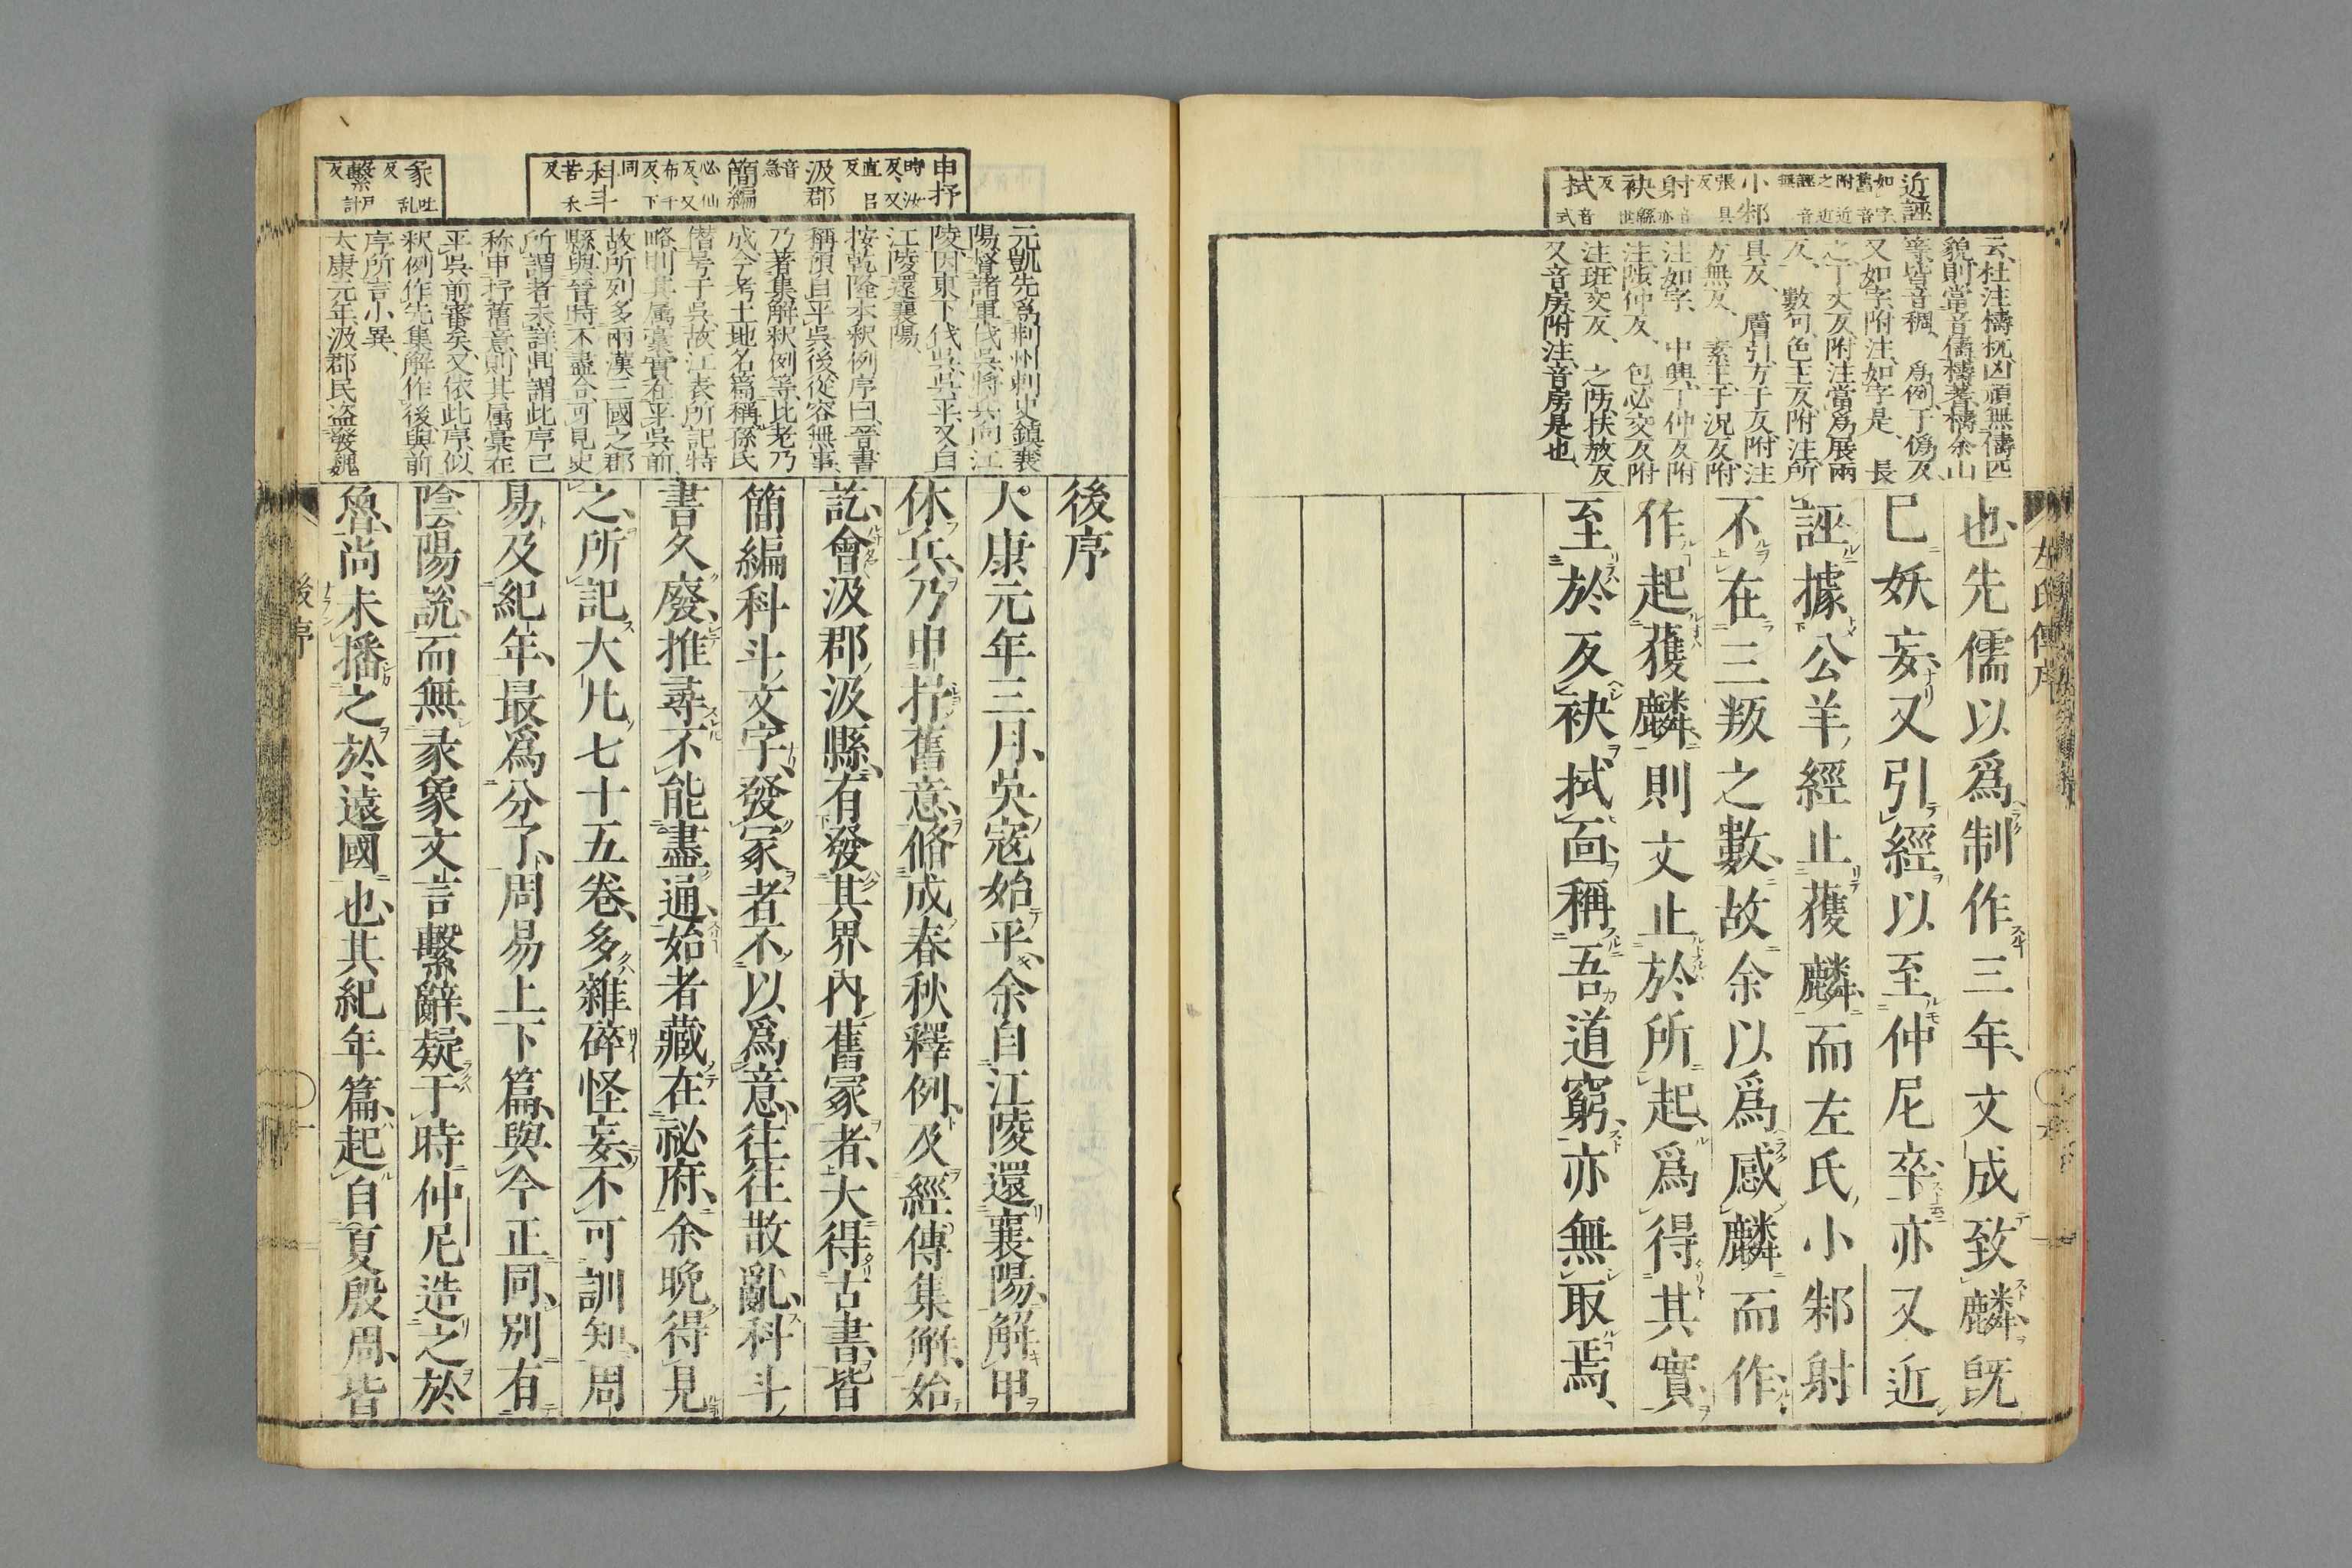 近誣
小邾
射
袂
拭
云杜注檮杌凶頑無儔匹
貌則當音儔檮著檮余山
等皆音稠 為例于偽反
又如字附注如字是 長
之丁丈反附注當為展兩
反 數句色主反附注所
具反 曆引方于反附注
方無反 素王于況反附
注如字 中興丁仲反附
注張仲反 包必交反附
注班交反 之防扶放反
又音房附注音房是也
也先儒以爲制作三年文成致麟既
已妖妄又引經以至仲尼卒亦又近
誣據公羊經止獲麟而左氏小邾射
不在三叛之數故余以爲感麟而作
作起獲麟則文止於所起爲得其實
至於反袂拭面稱吾道窮亦無取焉
左氏傳序
申抒
時汝反又直呂反
汲郡
音急
簡編
必仙反又布千反下同
科斗
苦禾反
彖
吐乱反
繫
戶計反
元凱先爲荆州刺史鎮襄
陽督諸軍伐吳將兵向江
陵因東下伐吳吳平又自
江陵還襄陽
按乾隆本釈例序曰晉書
稱預自平吳後從容無事
乃著集解釈例等比老乃
成今考土地名篇稱孫氏
僣号于吳故江表所記特
略則其属稾實在平吳前
故所列多兩漢三國之郡
縣與晉時不盡合可見史
所謂者未詳鼎謂此序已
称申抒舊意則其属稾在
平吳前審矣又依此序似
釈例作先集解作後與前
序所言小異
大康元年汲郡民盗發魏
後序
大康元年三月吳寇始平余自江陵還襄陽解甲
休兵乃申抒舊意脩成春秋釋例及經傳集解始
訖會汲郡汲縣有發其界內舊冢者大得古書皆
簡編科斗文字發冢者不以爲意往往散亂科斗
書久廢推尋不能盡通始者藏在祕府余晚得見
之所記大凡七十五卷多雜碎怪妄不可訓知周
易及紀年最爲分了周易上下篇與今正同別有
陰陽說而無彖象文言繫辭疑于時仲尼造之於
魯尚未播之於遠國也其紀年篇起自夏殷周皆
後序